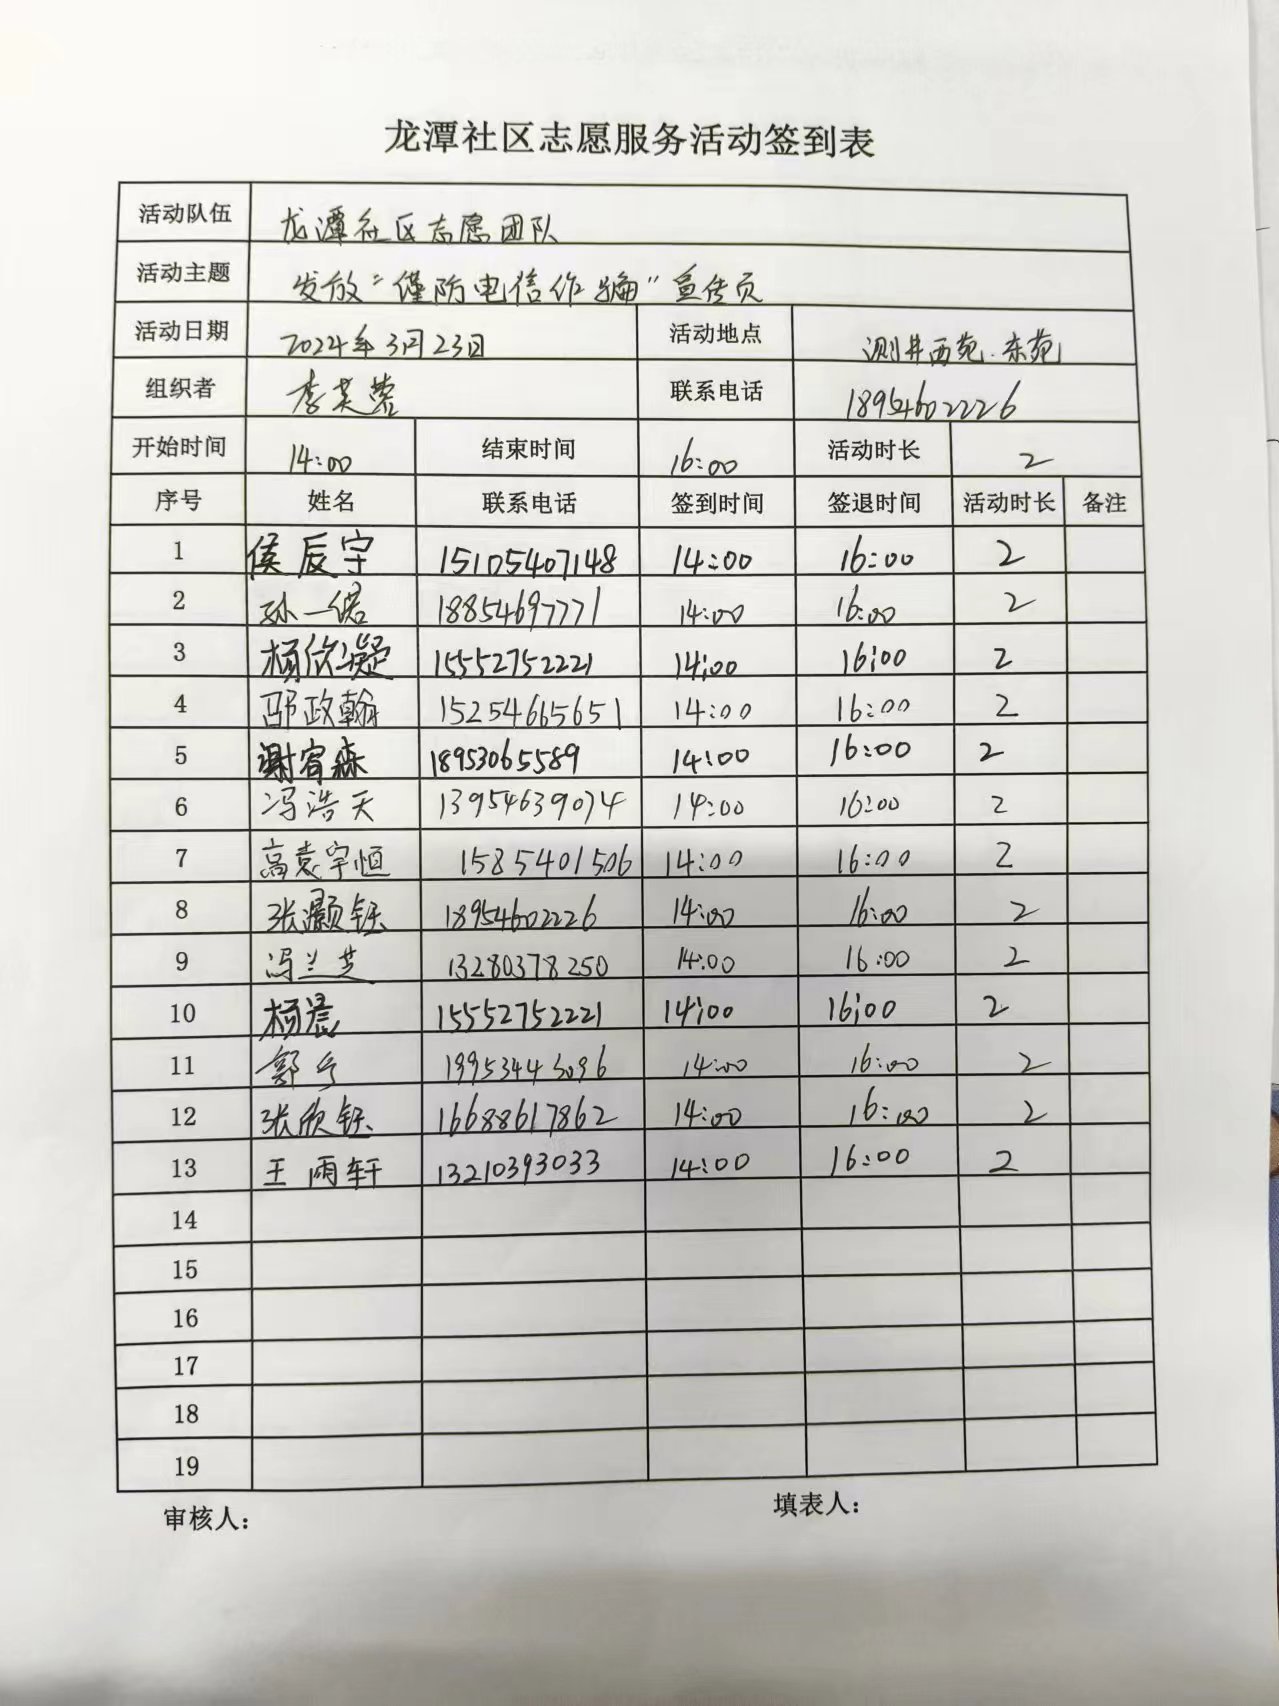 龙潭社区志愿服务活动签到表
活动队伍 龙潭社区志愿团队
活动主题 发放“谨防电信诈骗”宣传页
活动日期 2024年3月23日 活动地点 测井西苑.东苑
组织者 李芙蓉 联系电话 18954602226
开始时间 14:00 结束时间 16:00 活动时长 2
序号 姓名 联系电话 签到时间 签退时间 活动时长 备注
1 侯辰宇 15105407148 14:00 16:00 2
2 孙一诺 18854697771 14:00 16:00 2
3 杨欣凝 15552752221 14:00 16:00 2
4 邵政翰 15254665651 14:00 16:00 2
5 谢宥森 18953065589 14:00 16:00 2
6 冯浩天 13954639074 14:00 16:00 2
7 高袁宇恒 1585401506 14:00 16:00 2
8 张灏钰 18954602226 14:00 16:00 2
9 冯兰芝 13280378250 14:00 16:00 2
10 杨晨 15552752221 14:00 16:00 2
11 14:00 16:00 2
12 张欣钰 16688617862 14:00 16:00 2
13 王雨轩 13210393033 14:00 16:00 2
14
15
16
17
18
19
审核人： 填表人：